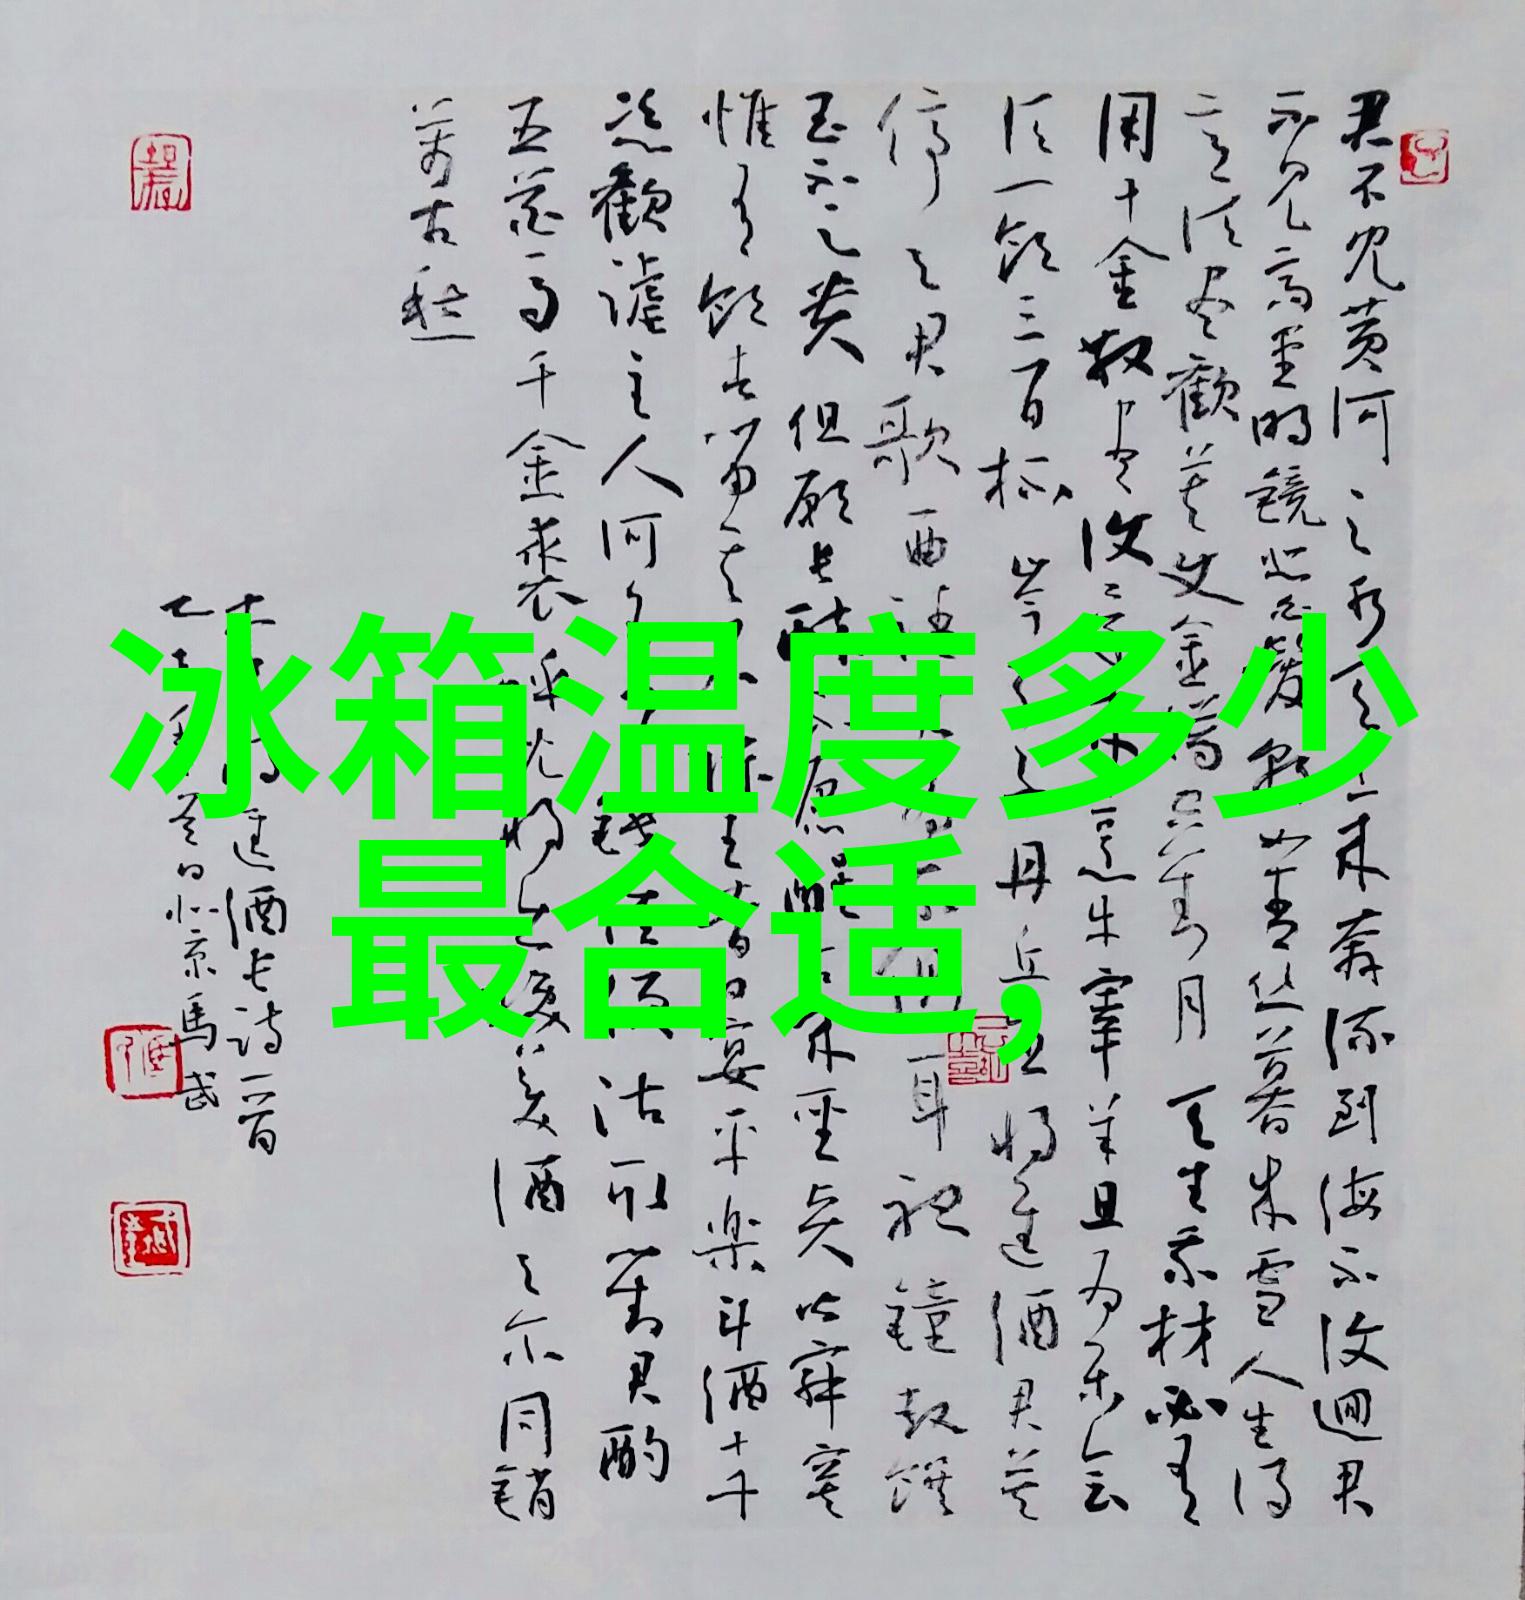 冰箱温度多少
最合适,
君不见黄河之水天上来奔流到海不復迴君
不见高堂明镜悲白髮朝如青丝暮成雪人生得
意须尽歡莫使金樽空对月天生我材必有
用千金散尽復還来烹牛宰羊且为乐会
须一飲三百杯岑夫子丹丘生将進酒君莫
停与君歌一曲請君为我倾耳聽鐘鼓饌
玉不足贵但願长醉不愿醒古来聖贤皆寂寞
惟有飲者留其名陈王昔日宴平楽斗酒十千
恣歡謔主人何为言少錢径须沽取对君酌
五花马千金裘呼儿将出换美酒与尔同銷
萬古愁
李白将進酒长诗一首
乙未年 京馬武